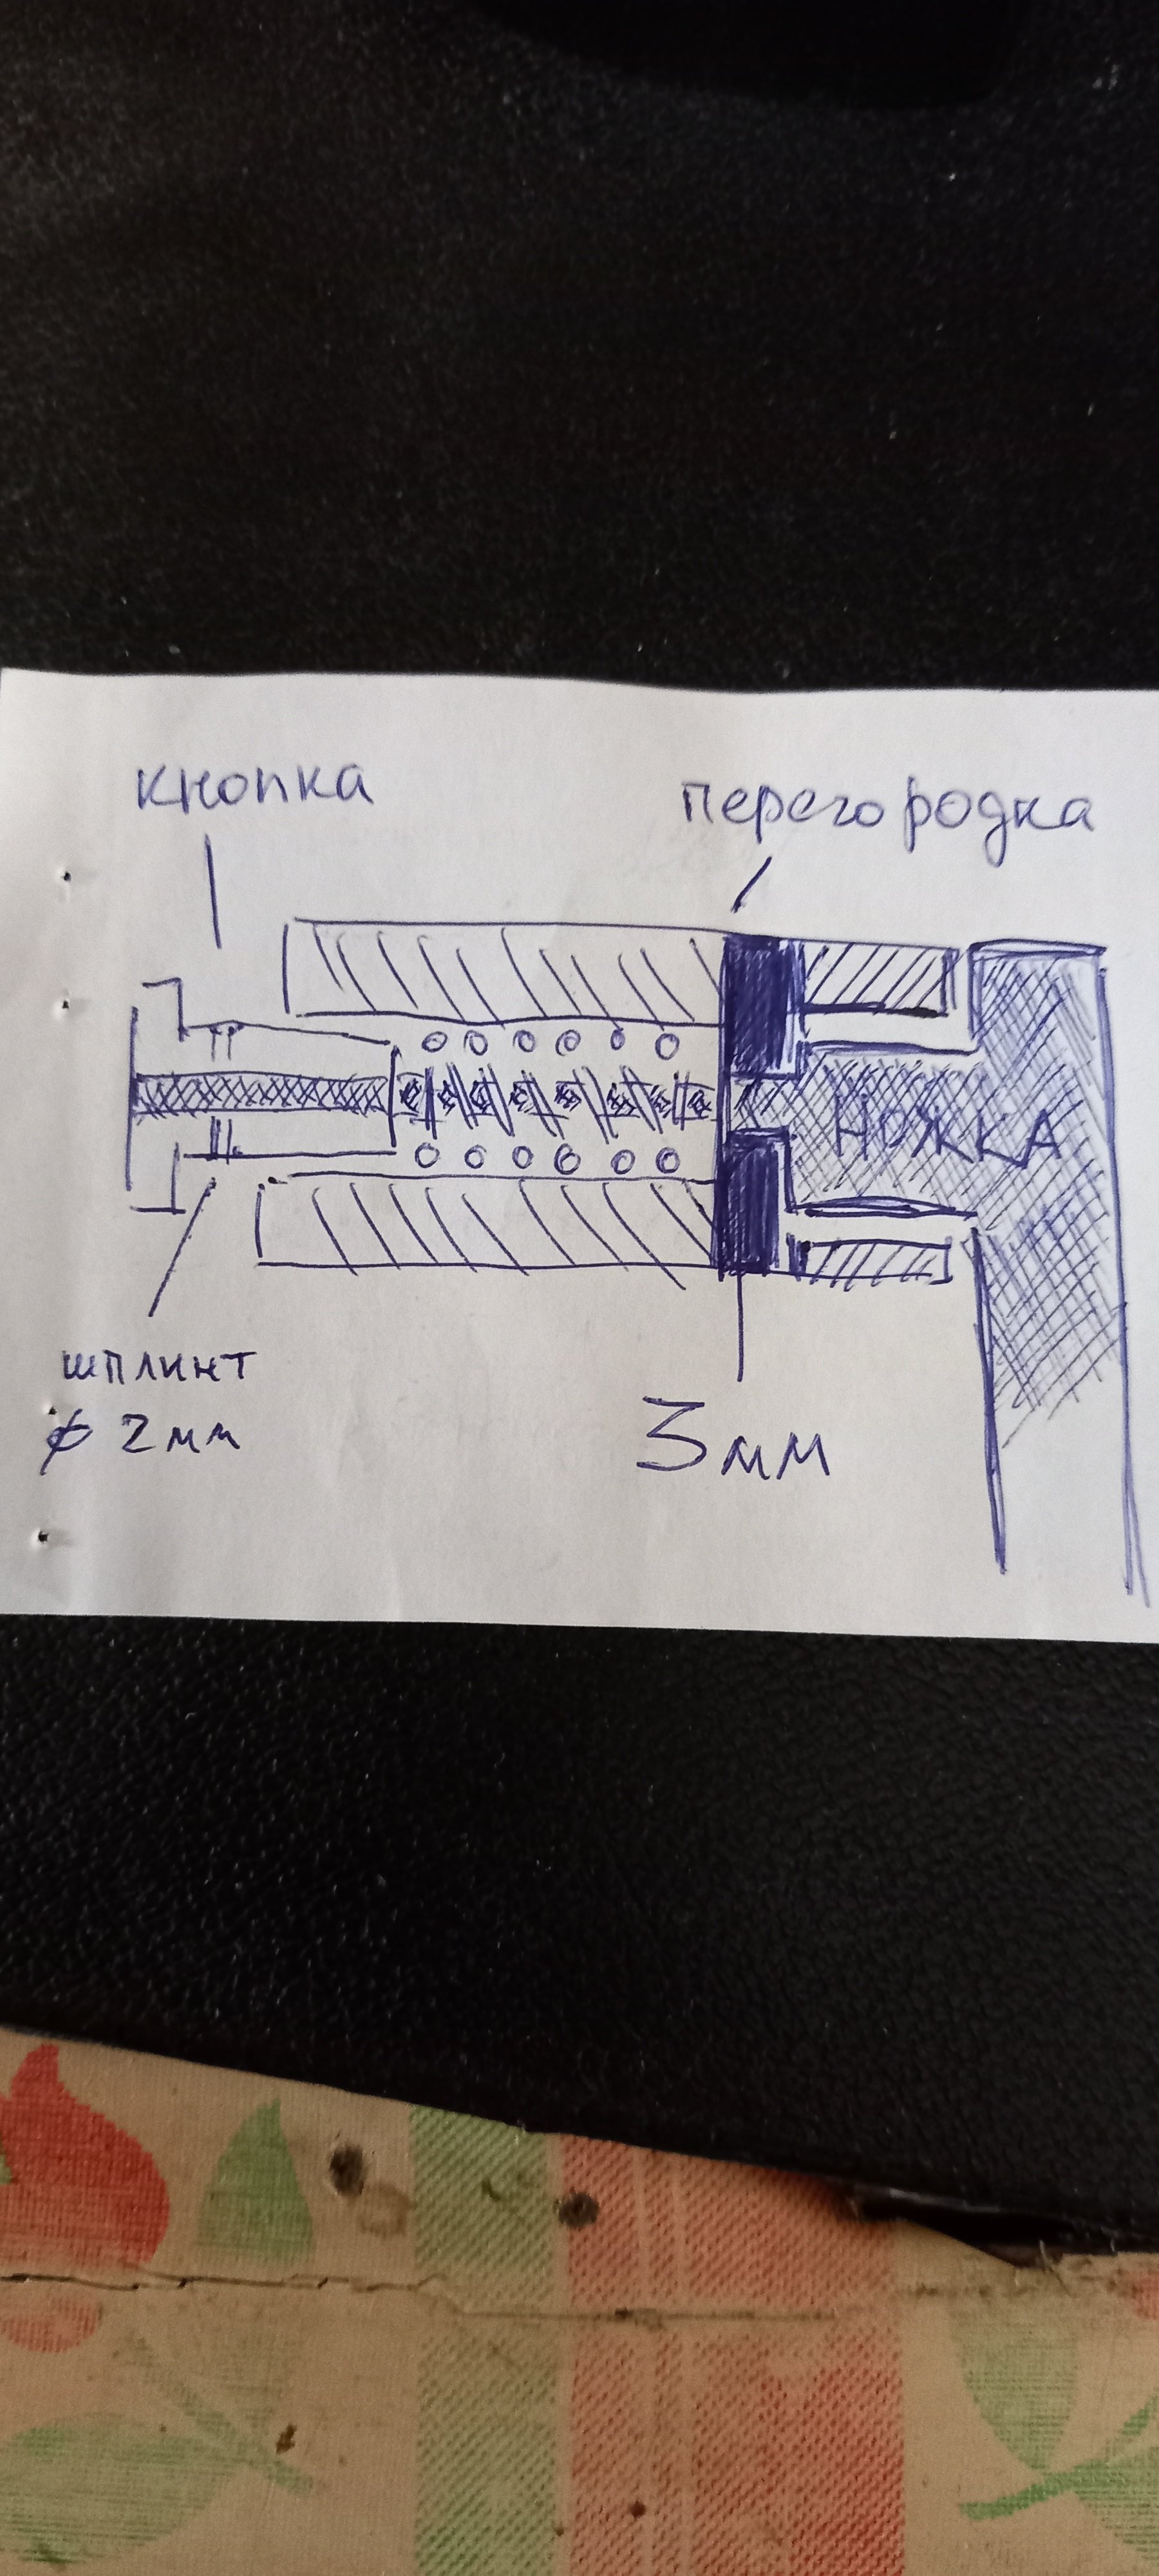 кнопка
перегородка
НОЖКА
шплинт
ϕ 2мм
3мм